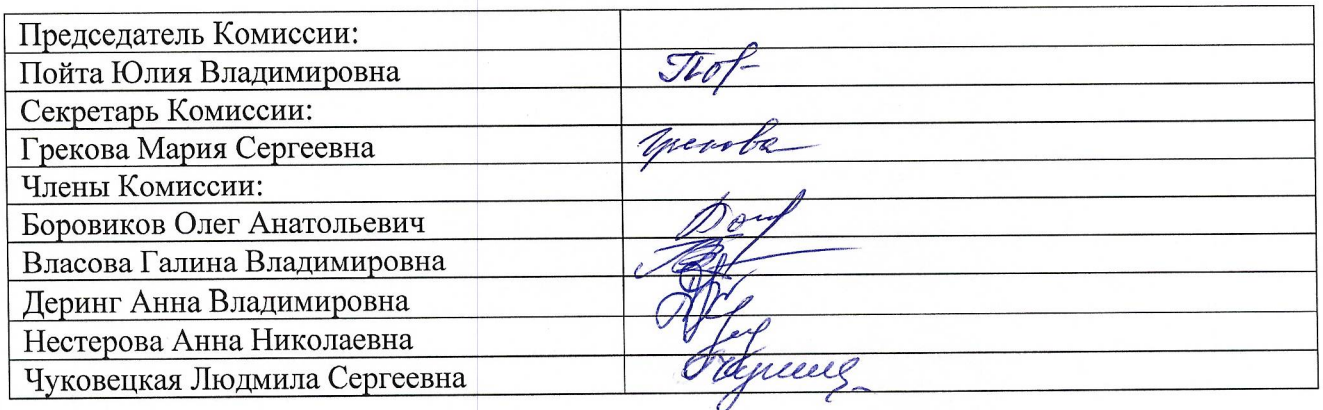 Председатель Комиссии:
Пойта Юлия Владимировна
Секретарь Комиссии:
Грекова Мария Сергеевна Грекова
Члены Комиссии:
Боровиков Олег Анатольевич
Власова Галина Владимировна
Деринг Анна Владимировна
Нестерова Анна Николаевна
Чуковецкая Людмила Сергеевна